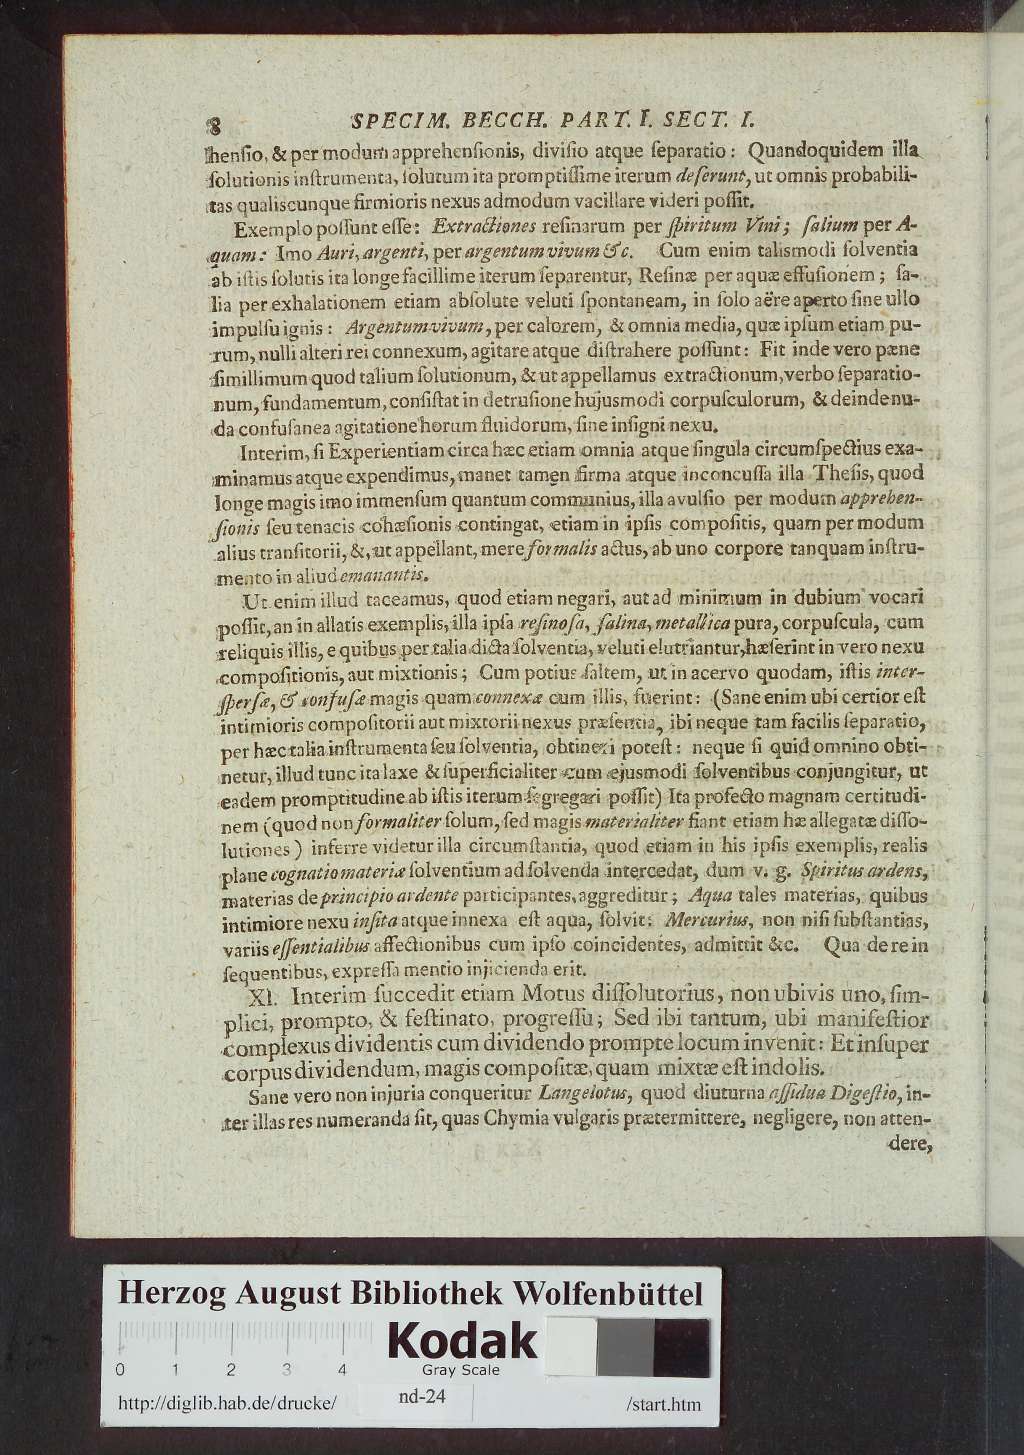 8 SPECIM. BECCH. PART. I. SECT. I.
henſio, & per modum apprehenſionis, diviſio atque ſeparatio: Quandoquidem illa
ſolutionis inſtrumenta, ſolutum ita promptiſſime iterum deſerunt, ut omnis probabili-
tas qualiscunque firmioris nexus admodum vacillare videri poſſit.
Exemplo poſſunt eſſe: Extractiones reſinarum per ſpiritum Vini; ſalium per A-
quam: Imo Auri, argenti, per argentum vivum &c. Cum enim talismodi ſolventia
ab iſtis ſolutis ita longe facillime iterum ſeparentur, Reſinæ per aquæ effuſionem; ſa-
lia per exhalationem etiam abſolute veluti ſpontaneam, in ſolo aëre aperto ſine ullo
impulſu ignis: Argentum vivum, per calorem, & omnia media, quæ ipſum etiam pu-
rum, nulli alteri rei connexum, agitare atque diſtrahere poſſunt: Fit inde vero pæne
ſimillimum quod talium ſolutionum, & ut appellamus extractionum, verbo ſeparatio-
num, fundamentum, conſiſtat in detruſione hujusmodi corpuſculorum, & deinde nu-
da confuſanea agitatione horum fluidorum, ſine inſigni nexu.
Interim, ſi Experientiam circa hæc etiam omnia atque ſingula circumſpectius exa-
minamus atque expendimus, manet tamen firma atque inconcuſſa illa Theſis, quod
longe magis imo immenſum quantum communius, illa avulſio per modum apprehen-
ſionis ſeu tenacis cohæſionis contingat, etiam in ipſis compoſitis, quam per modum
alius tranſitorii, &, ut appellant, mere formalis actus, ab uno corpore tanquam inſtru-
mento in aliud emanantis.
Ut enim illud taceamus, quod etiam negari, aut ad minimum in dubium vocari
poſſit, an in allatis exemplis, illa ipſa reſinoſa, ſalina, metallica pura, corpuſcula, cum
reliquis illis, e quibus per talia dicta ſolventia, veluti elutriantur, hæſerint in vero nexu
compoſitionis, aut mixtionis; Cum potius ſaltem, ut in acervo quodam, iſtis inter-
ſperſæ, & confuſæ magis quam connexæ cum illis, fuerint: (Sane enim ubi certior eſt
intimioris compoſitorii aut mixtorii nexus præſentia, ibi neque tam facilis ſeparatio,
per hæc talia inſtrumenta ſeu ſolventia, obtineri poteſt: neque ſi quid omnino obti-
netur, illud tunc ita laxe & ſuperficialiter cum ejusmodi ſolventibus conjungitur, ut
eadem promptitudine ab iſtis iterum ſegregari poſſit) Ita profecto magnam certitudi-
nem (quod non formaliter ſolum, ſed magis materialiter fiant etiam hæ allegatæ diſſo-
lutiones) inferre videtur illa circumſtantia, quod etiam in his ipſis exemplis, realis
plane cognatio materiæ ſolventium ad ſolvenda intercedat, dum v. g. Spiritus ardens,
materias de principio ardente participantes, aggreditur; Aqua tales materias, quibus
intimiore nexu inſita atque innexa eſt aqua, ſolvit: Mercurius, non niſi ſubſtantias,
variis eſſentialibus affectionibus cum ipſo coincidentes, admittit &c. Qua de re in
ſequentibus, expreſſa mentio injicienda erit.
XI. Interim ſuccedit etiam Motus diſſolutorius, non ubivis uno, ſim-
plici, prompto, & feſtinato, progreſſu; Sed ibi tantum, ubi manifeſtior
complexus dividentis cum dividendo prompte locum invenit: Et inſuper
corpus dividendum, magis compoſitæ, quam mixtæ eſt indolis.
Sane vero non injuria conqueritur Langelotus, quod diuturna aſſidua Digeſtio, in-
ter illas res numeranda ſit, quas Chymia vulgaris prætermittere, negligere, non atten-
dere,
Herzog August Bibliothek Wolfenbüttel
Kodak
Gray Scale
0 1 2 3 4
http://diglib.hab.de/drucke/ nd-24 /start.htm